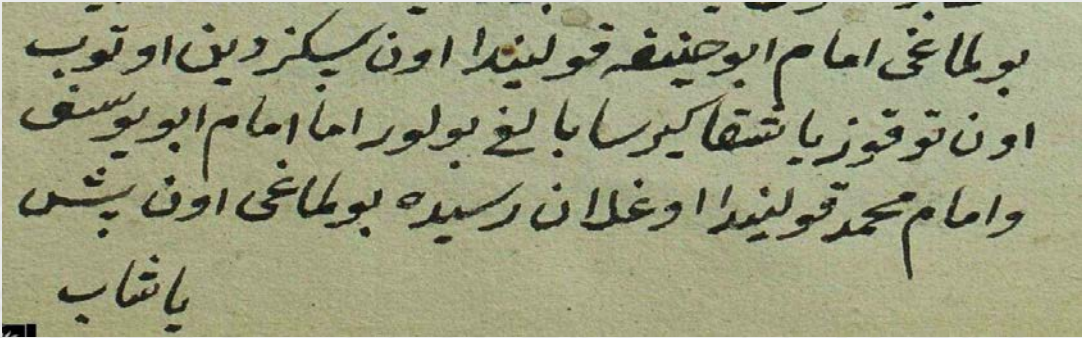 بولماغی امام ابو حنیفه قولیندا اون سیکز دین اوتوب
اون توقوز یاشقا کیرسا بالغ بولور اما امام ابو یوسف
وامام محمد قولیندا اوغلان رسیده بولماغی اون بش
یاشاب